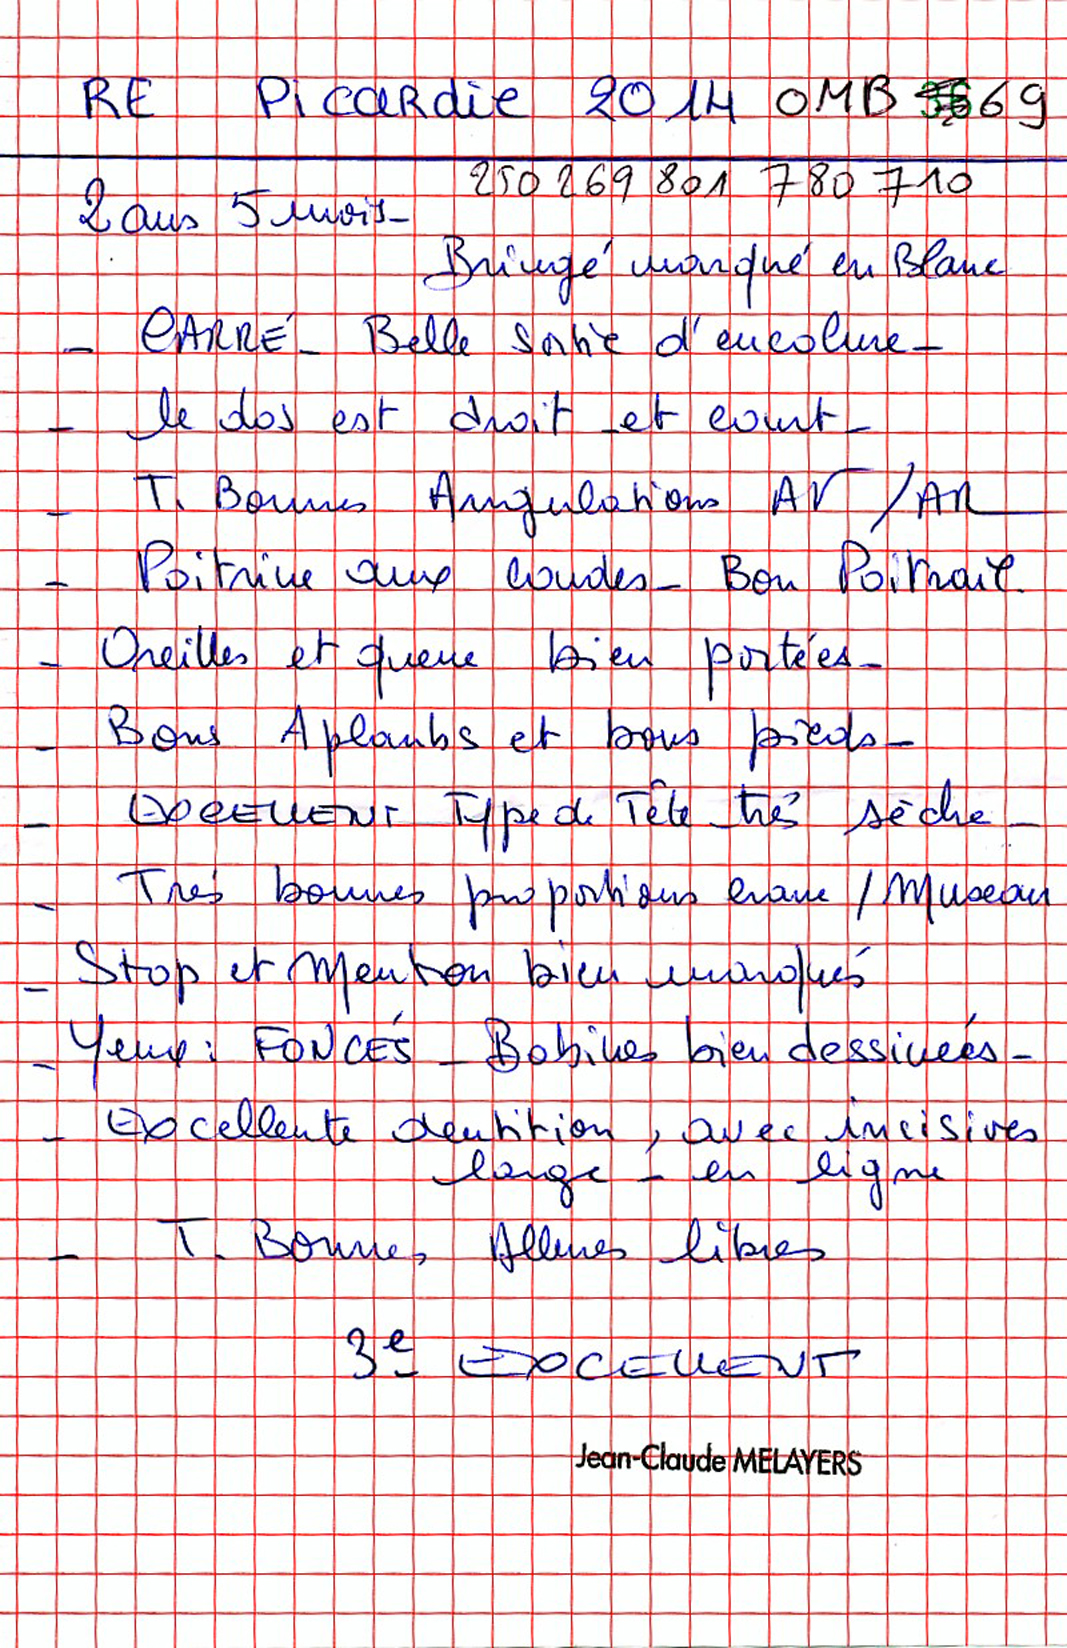 RE Picardie 2014 OMB 69
250 269 801 780 710
2 ans 5 mois -
Bringé marqué en Blanc
- CARRÉ - Belle Sortie d'encolure -
- le dos est droit et court -
- T. Bonnes Angulations AV / AR
- Poitrine aux coudes - Bon Poitrail.
- Oreilles et queue bien portées -
- Bons Aplombs et bons pieds -
- EXCELLENT Type de Tête très sèche -
- Très bonnes proportions crane / Museau
- Stop et Menton bien marqués
- Yeux : FONCÉS - Babines bien dessinées -
- Excellente dentition, avec incisives
large - en ligne
- T. Bonnes Allures libres
3e EXCELLENT
Jean-Claude MELAYERS